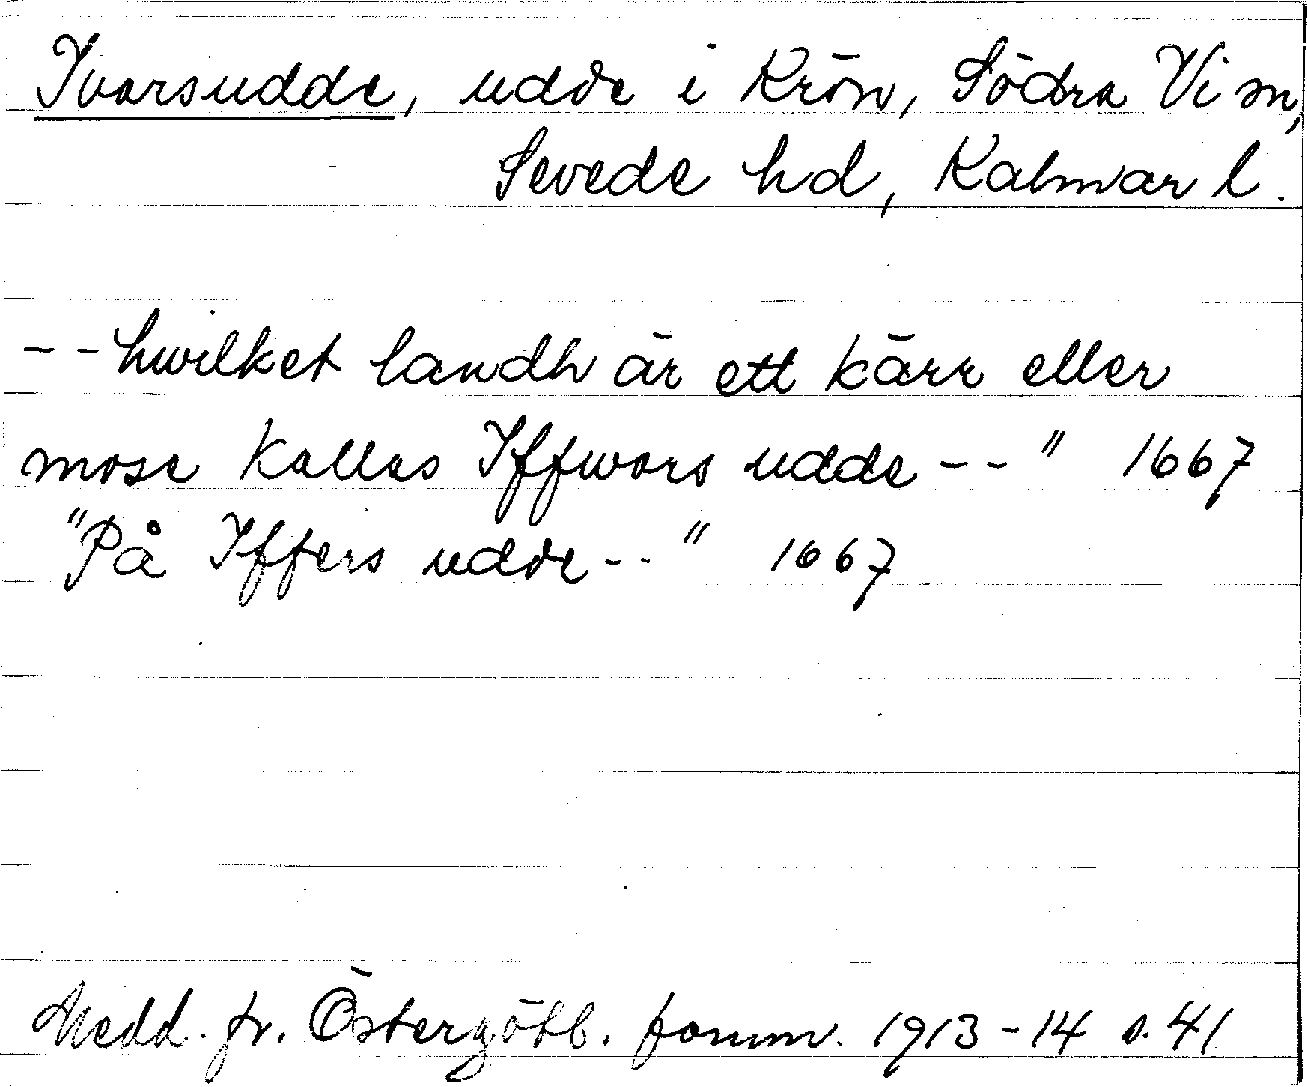 Ivarsudde, udde i Krön, Södra Vi sn,
Sevede hd, Kalmar l.
-- hwilket landh är ett kärr eller
mose kallas Iffwars udde -- " 1667
"På Iffers udde -- " 1667
Medd. fr. Östergötl. fornm. 1913-14 s. 41